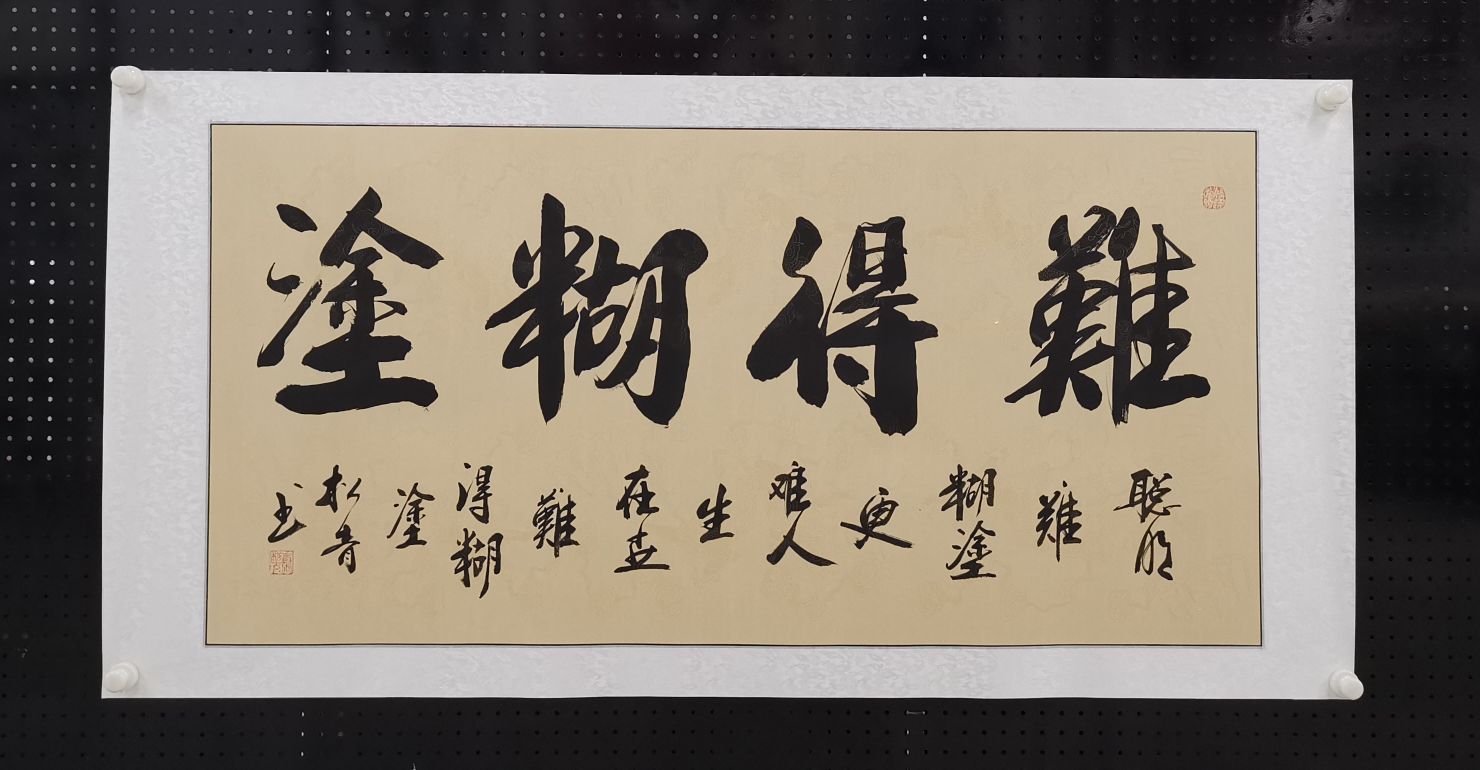 難得糊塗
聪明
難
糊塗
更
难人
生
在世
難
得糊
塗
松青
书